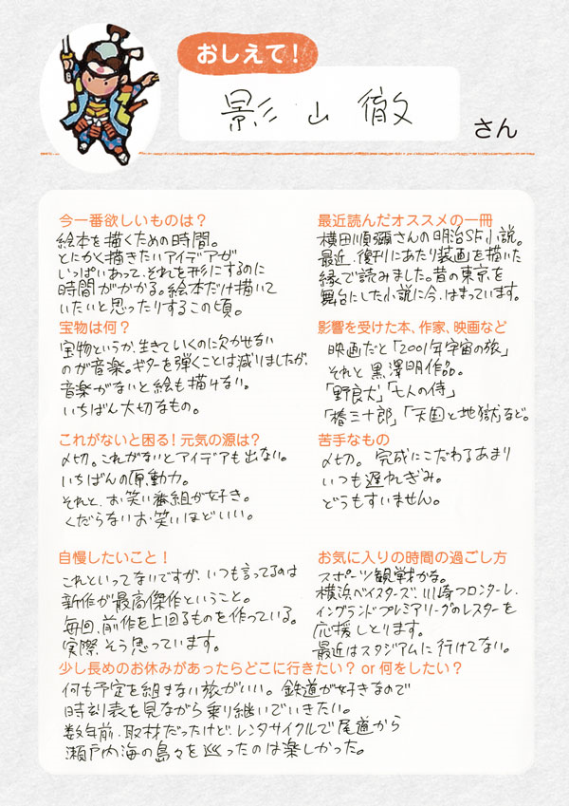 おしえて!
影山 徹
さん
今一番欲しいものは？
絵本を描くための時間。
とにかく描きたいアイデアが
いっぱいあって、それを形にするのに
時間がかかる。絵本だけ描いて
いたいと思ったりするこの頃。
宝物は何？
宝物というか、生きていくのに欠かせない
のが音楽。ギターを弾くことは減りましたが、
音楽がないと絵も描けない。
いちばん大切なもの。
これがないと困る！元気の源は？
〆切。これがないとアイデアも出ない。
いちばんの原動力。
それと、お笑い番組が好き。
くだらないお笑いほどいい。
自慢したいこと！
これといってないですが、いつも言ってるのは
新作が最高傑作ということ。
毎回、前作を上回るものを作っている。
実際、そう思っています。
最近読んだオススメの一冊
横田順彌さんの明治SF小説。
最近、復刊にあたり装画を描いた
縁で読みました。昔の東京を
舞台にした小説に今、はまっています。
影響を受けた本、作家、映画など
映画だと「2001年宇宙の旅」
それと黒澤明作品。
「野良犬」「七人の侍」
「椿三十郎」「天国と地獄」など。
苦手なもの
〆切。完成にこだわるあまり
いつも遅れぎみ。
どうもすいません。
お気に入りの時間の過ごし方
スポーツ観戦かな。
横浜ベイスターズ、川崎フロンターレ、
イングランドプレミアリーグのレスターを
応援しとります。
最近はスタジアムに行けてない。
少し長めのお休みがあったらどこに行きたい？ or 何をしたい？
何も予定を組まない旅がいい。鉄道が好きなので
時刻表を見ながら乗り継いでいきたい。
数年前、取材だったけど、レンタサイクルで尾道から
瀬戸内海の島々を巡ったのは楽しかった。